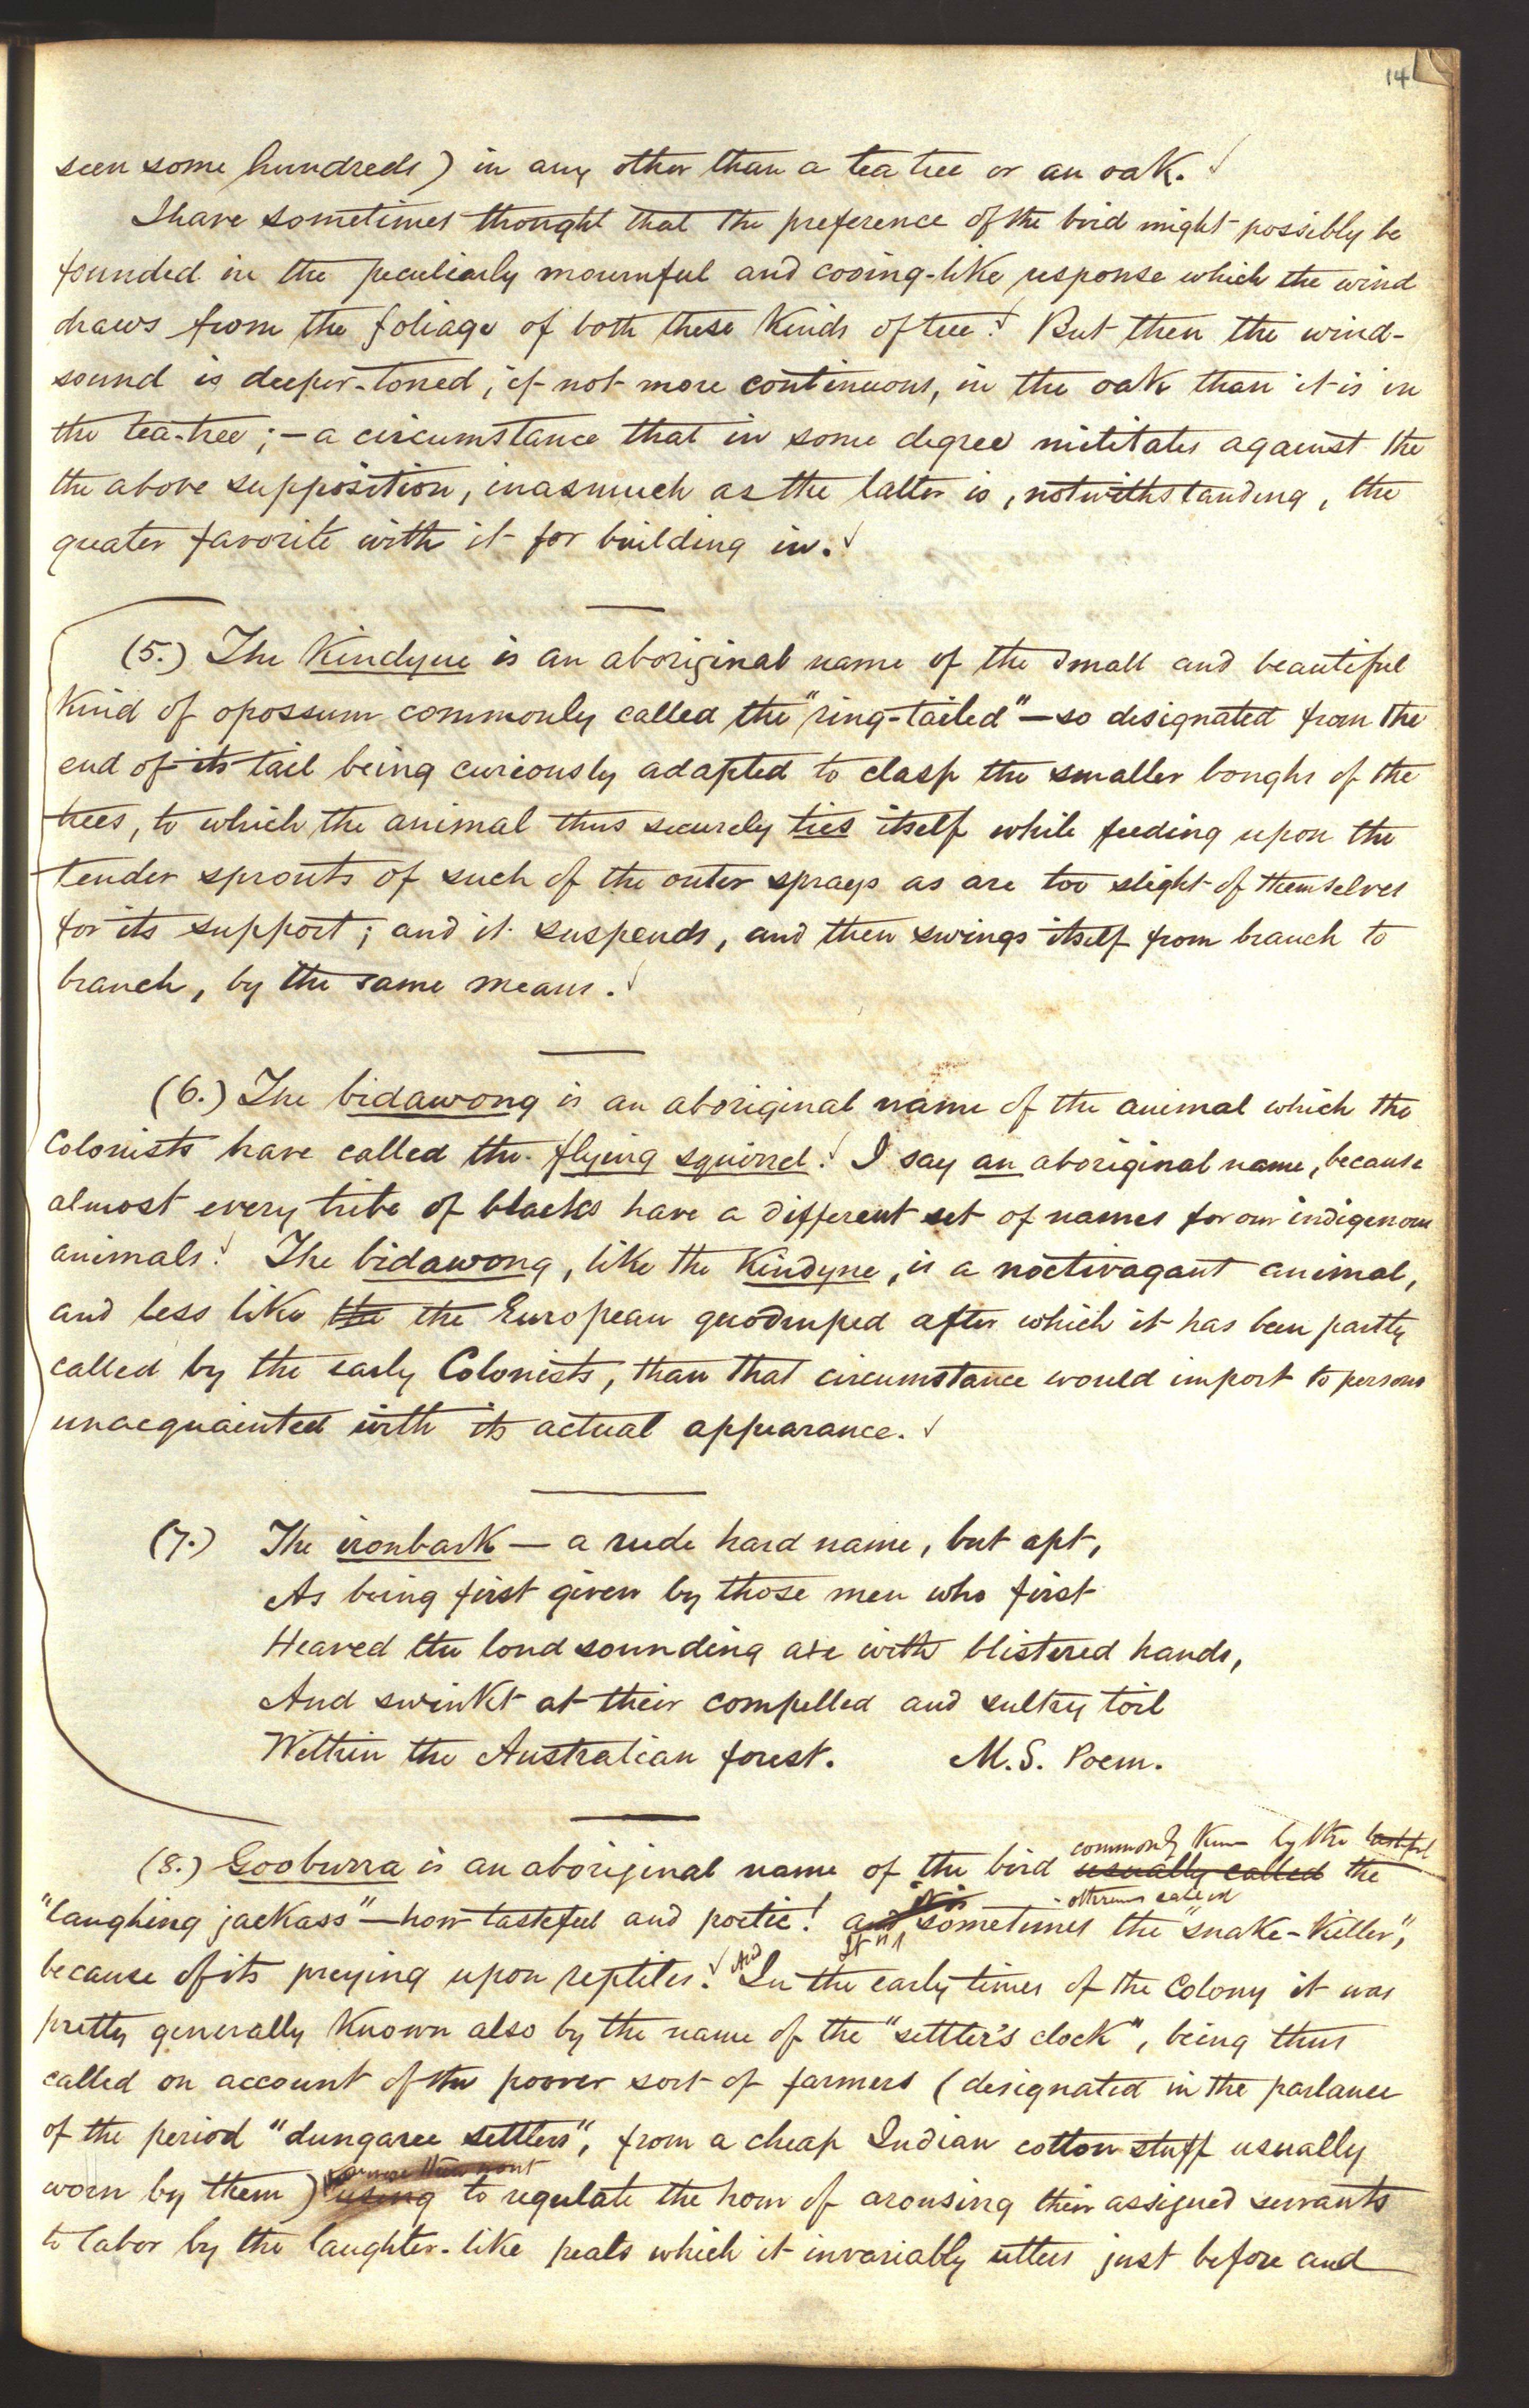 14
seen some hundreds) in any other than a tea tree or an oak.
I have sometimes thought that the preference of the bird might possibly be
founded in the peculiarly mournful and cooing-like response which the wind
draws from the foliage of both these kinds of tree. But then the wind-
sound is deeper-toned, if not more continuous, in the oak than it is in
the tea-tree; — a circumstance that in some degree militates against the
the above supposition, inasmuch as the latter is, notwithstanding, the
greater favorite with it for building in.
(5.) The Kindyne is an aboriginal name of the small and beautiful
kind of opossum commonly called the "ring-tailed" — so designated from the
end of its tail being curiously adapted to clasp the smaller boughs of the
trees, to which the animal thus securely ties itself while feeding upon the
tender sprouts of such of the outer sprays as are too slight of themselves
for its support; and it suspends, and then swings itself from branch to
branch, by the same means.
(6.) The bidawong is an aboriginal name of the animal which the
Colonists have called the flying squirrel. I say an aboriginal name, because
almost every tribe of blacks have a different set of names for our indigenous
animals. The bidawong, like the Kindyne, is a noctivagant animal,
and less like the the European quadruped after which it has been partly
called by the early Colonists, than that circumstance would import to persons
unacquainted with its actual appearance.
(7.) The ironbark — a rude hard name, but apt,
As being first given by those men who first
Heaved the loud sounding axe with blistered hands,
And swinkt at their compelled and sultry toil
Within the Australian forest. M.S. Poem.
commonly known by the
(8.) Gooburra is an aboriginal name of the bird usually called the
otherwise called
"laughing jackass" — how tasteful and poetic! and sometimes the "snake-killer",
It is
because of its preying upon reptiles. And In the early times of the Colony it was
pretty generally known also by the name of the "settler's clock", being thus
called on account of the poorer sort of farmers (designated in the parlance
of the period "dungaree settlers", from a cheap Indian cotton stuff usually
worn by them) using to regulate the hour of arousing their assigned servants
to labor by the laughter-like peals which it invariably utters just before and